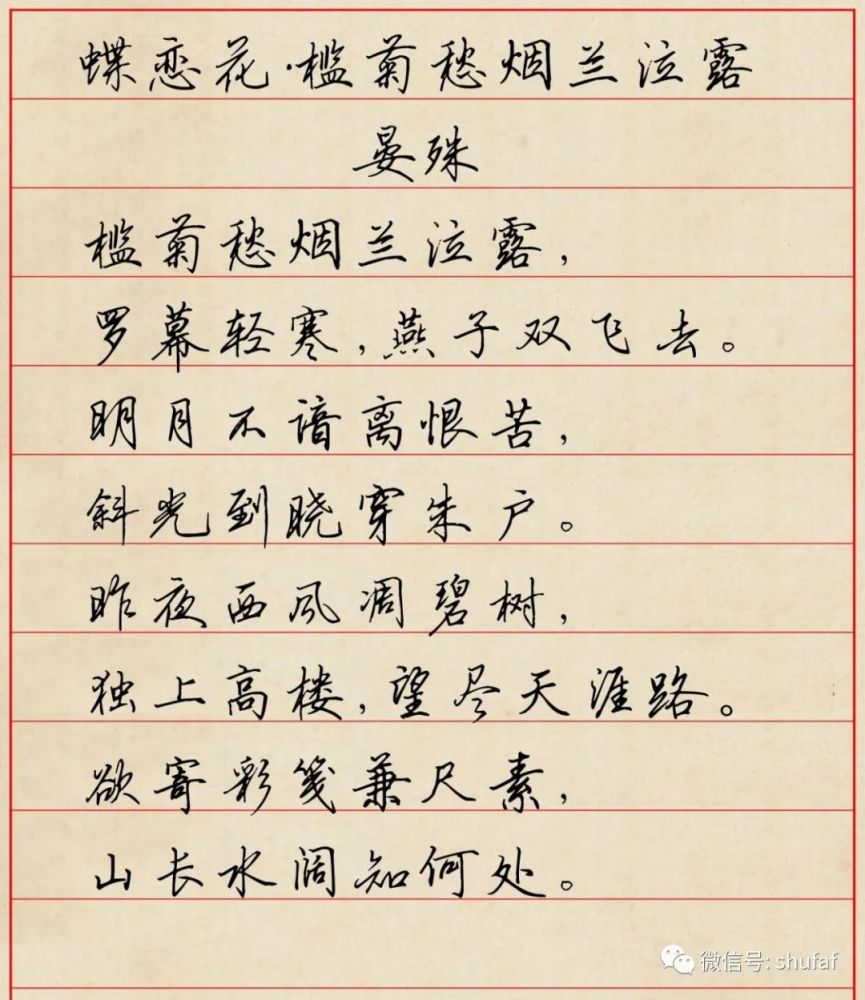 蝶恋花·槛菊愁烟兰泣露
晏殊
槛菊愁烟兰泣露,
罗幕轻寒,燕子双飞去。
明月不谙离恨苦,
斜光到晓穿朱户。
昨夜西风凋碧树,
独上高楼,望尽天涯路。
欲寄彩笺兼尺素,
山长水阔知何处。
微信号: shufaf